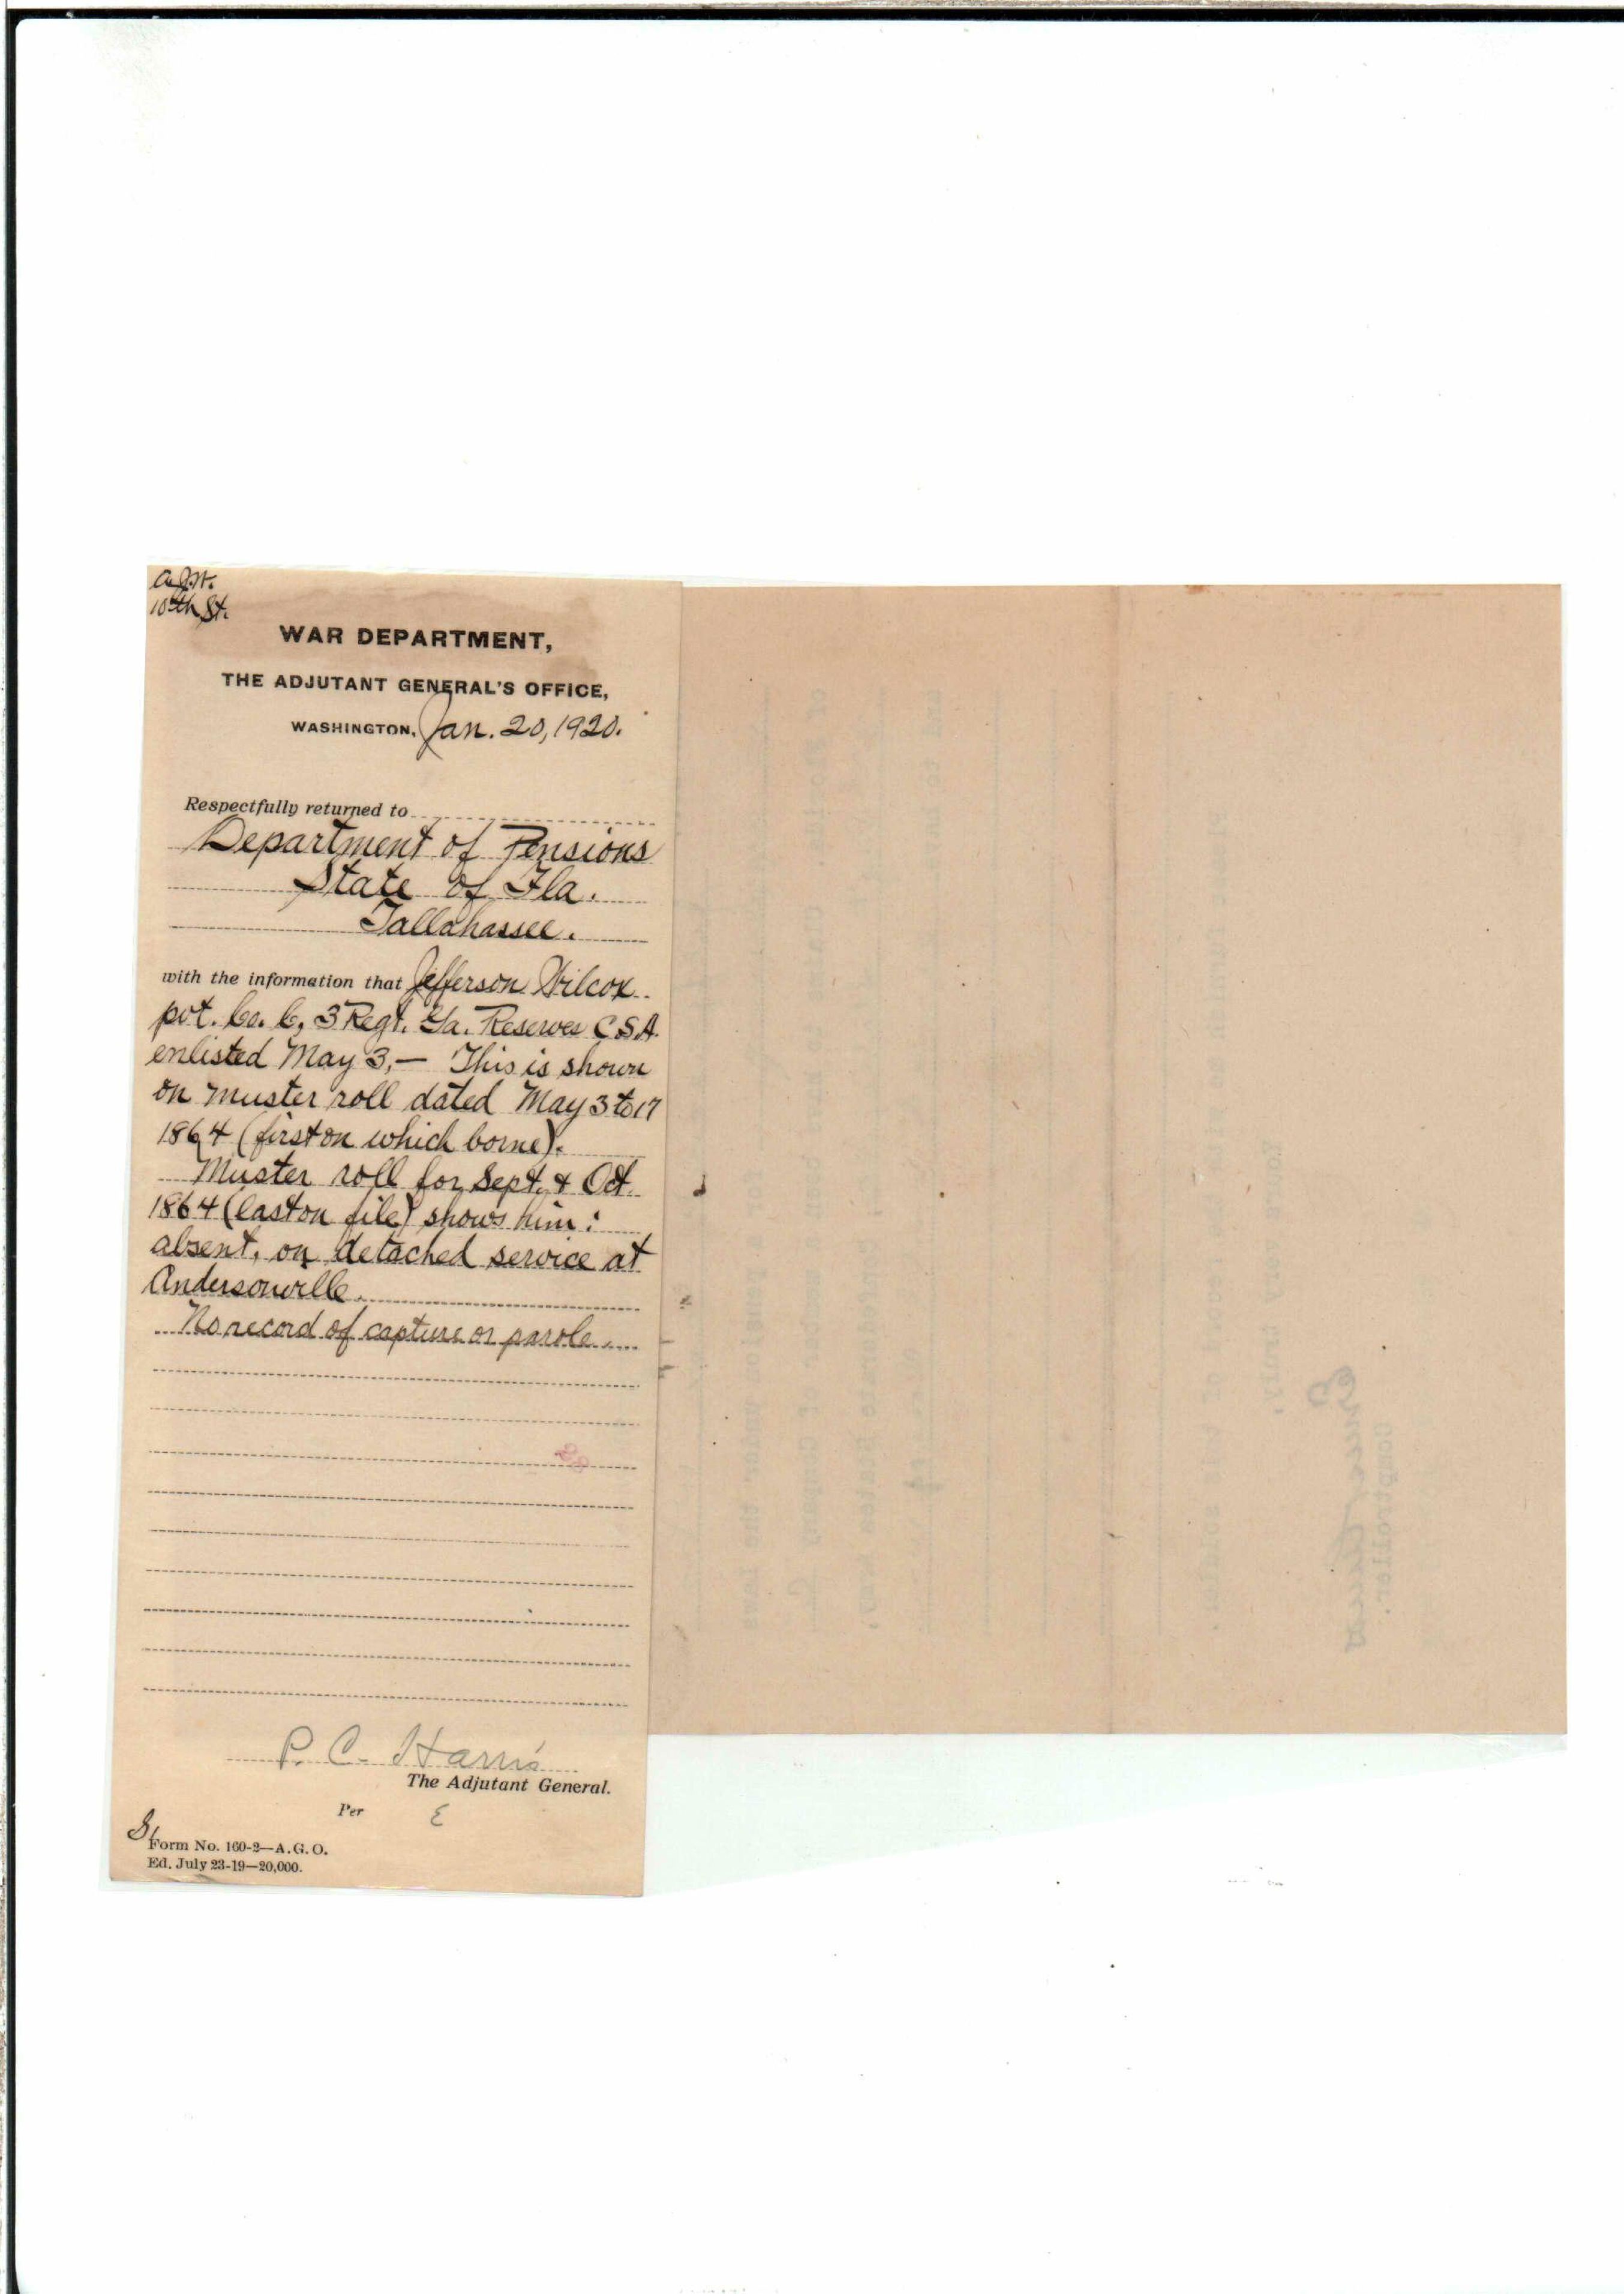 10th St.
WAR DEPARTMENT,
THE ADJUTANT GENERAL'S OFFICE,
WASHINGTON, Jan. 20, 1920.
Respectfully returned to
Department of Pensions
State of Fla.
Tallahassee.
with the information that Jefferson Wilcox
pvt. Co. C, 3 Regt. Ga. Reserves C.S.A.
enlisted May 3,— This is shown
on muster roll dated May 3 to 17
1864 (first on which borne).
Muster roll for Sept. & Oct.
1864 (last on file) shows him:
absent, on detached service at
Andersonville.
No record of capture or parole.
P. C. Harris
The Adjutant General.
Per E
Form No. 160-2—A.G.O.
Ed. July 23-19—20,000.